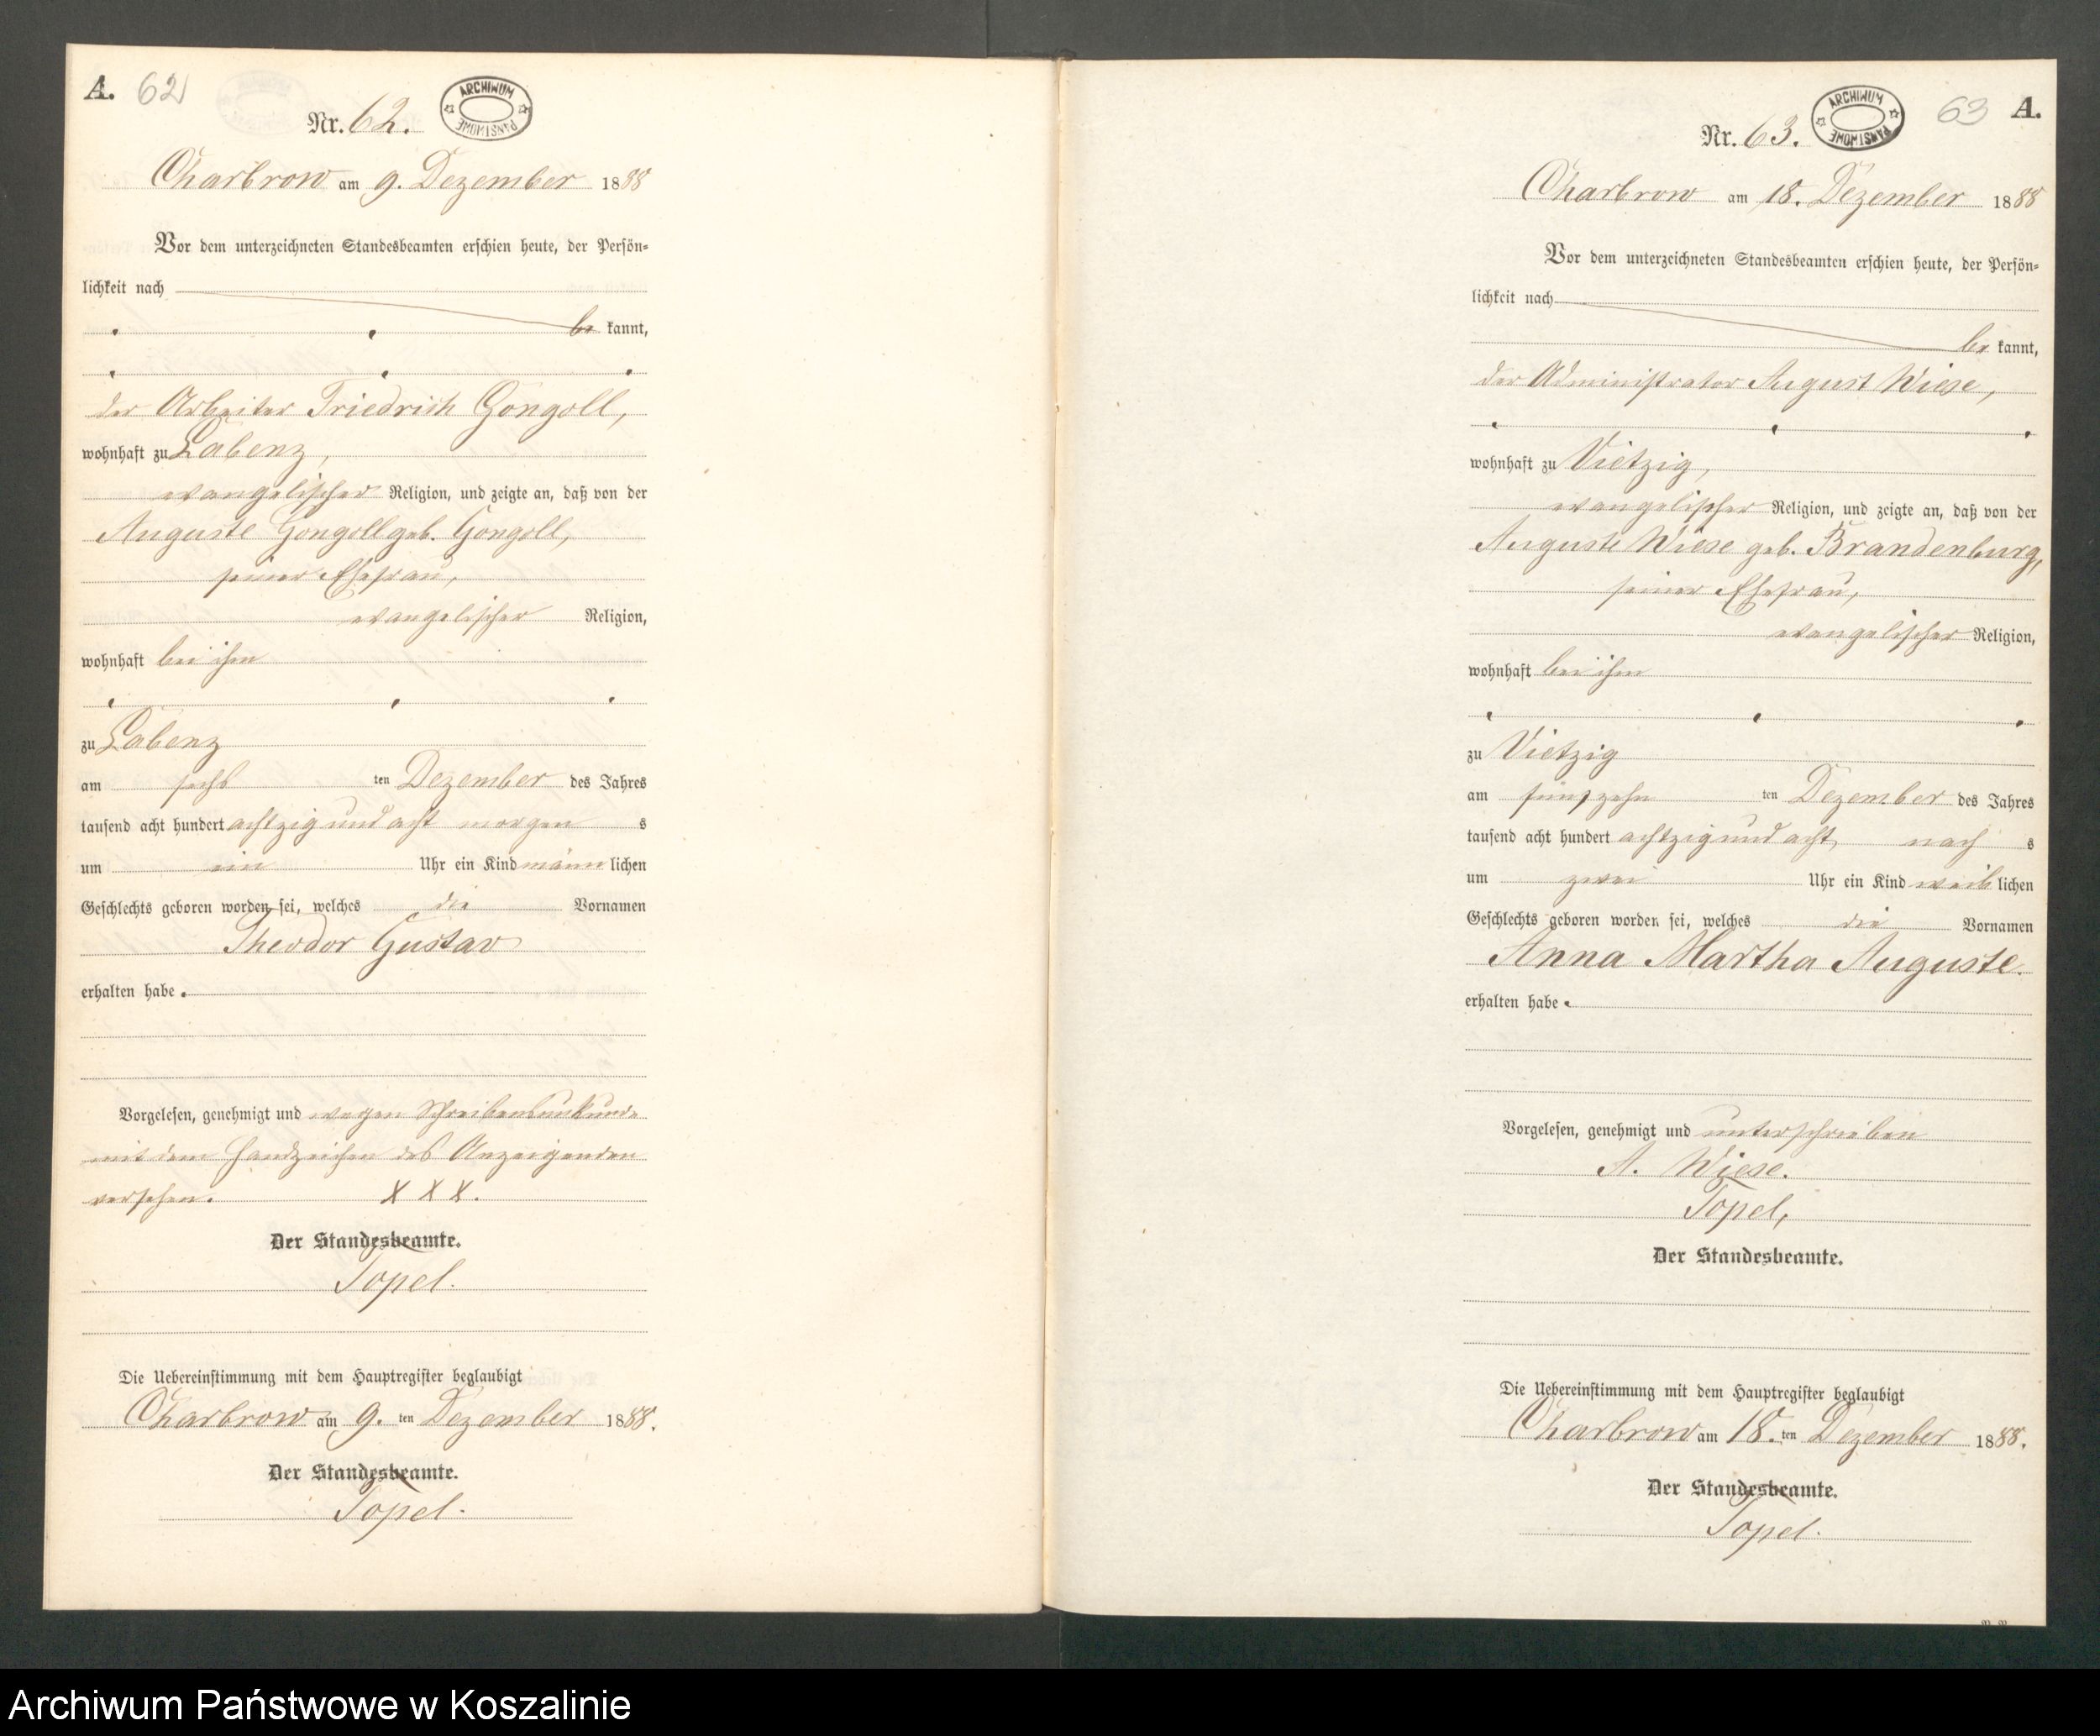 A. 62
Nr. 62.
ARCHIWUM PAŃSTWOWE
Charbrow am 9. Dezember 1888
Vor dem unterzeichneten Standesbeamten erschien heute, der Persön-
lichkeit nach
be kannt,
der Arbeiter Friedrich Gongoll,
wohnhaft zu Labenz,
evangelischer Religion, und zeigte an, daß von der
Auguste Gongoll geb. Gongoll,
seiner Ehefrau,
evangelischer Religion,
wohnhaft bei ihm
zu Labenz
am sechs ten Dezember des Jahres
tausend acht hundert achtzig und acht morgen s
um ein Uhr ein Kind männ lichen
Geschlechts geboren worden sei, welches die Vornamen
Theodor Gustav
erhalten habe.
Vorgelesen, genehmigt und wegen Schreibensunkunde
mit dem Handzeichen des Anzeigenden
versehen. X X X.
Der Standesbeamte.
Topel.
Die Uebereinstimmung mit dem Hauptregister beglaubigt
Charbrow am 9. ten Dezember 1888.
Der Standesbeamte.
Topel.
63 A.
Nr. 63.
ARCHIWUM PAŃSTWOWE
Charbrow am 18. Dezember 1888
Vor dem unterzeichneten Standesbeamten erschien heute, der Persön-
lichkeit nach
be kannt,
der Administrator August Wiese,
wohnhaft zu Vietzig,
evangelischer Religion, und zeigte an, daß von der
Auguste Wiese geb. Brandenburg,
seiner Ehefrau,
evangelischer Religion,
wohnhaft bei ihm
zu Vietzig
am fünfzehn ten Dezember des Jahres
tausend acht hundert achtzig und acht, nach s
um zwei Uhr ein Kind weib lichen
Geschlechts geboren worden sei, welches die Vornamen
Anna Martha Auguste.
erhalten habe.
Vorgelesen, genehmigt und unterschrieben
A. Wiese.
Topel,
Der Standesbeamte.
Die Uebereinstimmung mit dem Hauptregister beglaubigt
Charbrow am 18. ten Dezember 1888.
Der Standesbeamte.
Topel.
Archiwum Państwowe w Koszalinie